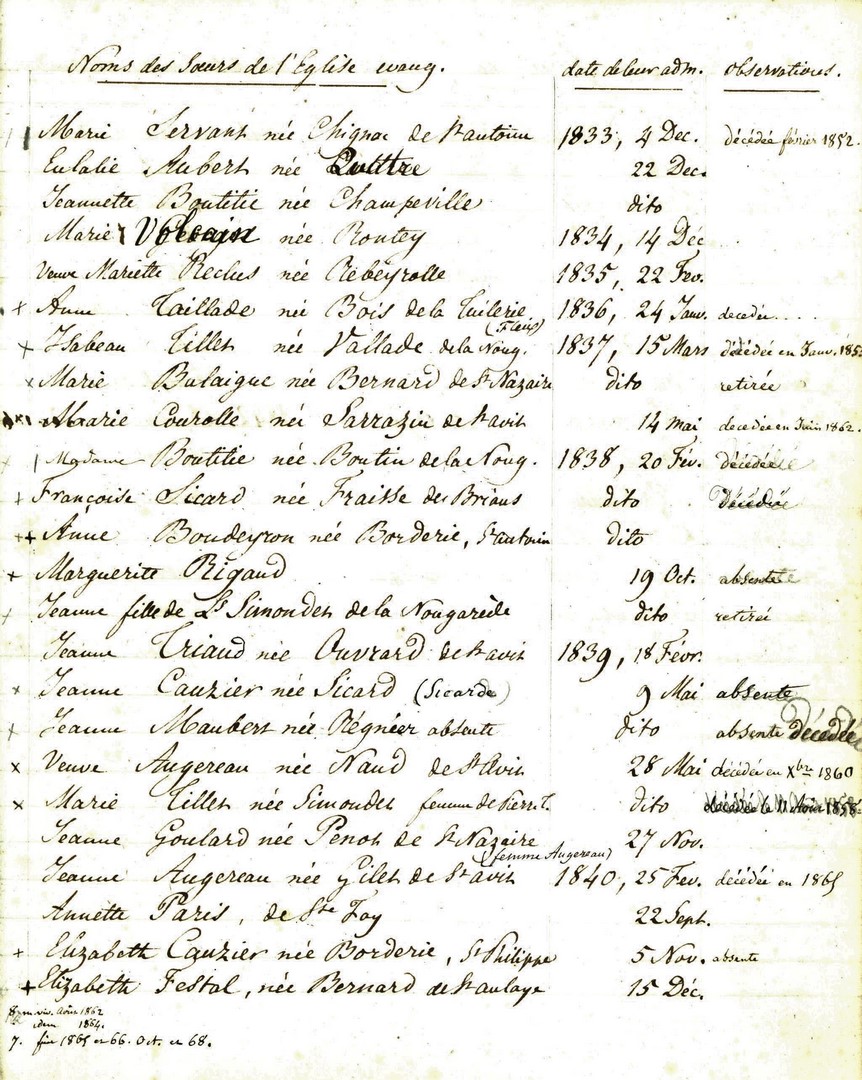 Noms des Sœurs de l'Eglise evang. date de leur adm. observations.
Marie Servant née Chignac de St antoine 1833, 4 Dec. décédée février 1852.
Eulalie Aubert née 22 Dec.
Jeannette Boutitie née Champeville dito
Marie née Routey 1834, 14 Déc
Veuve Mariette Reclus née Rébeyrolle 1835, 22 Fev.
+ Anne Taillade née Bois de la Tuilerie 1836, 24 Janv. decedée....
(Fleix)
+ Isabeau Tillet née Vallade de la Noug. 1837, 15 Mars décédée en Janv. 185
x Marie Bulaigue née Bernard de St Nazaire dito retirée
Marie Courolle née Sarrazin de St avit 14 mai decedée en Juin 1862.
Madame Boutitie née Boutin de la Noug. 1838, 20 Fév. décédée
+ Françoise Sicard née Fraisse des Briaus dito Décédée
++ Anne Boudeyron née Borderie, St antoine dito
+ Marguerite Rigaud 19 Oct. absente
+ Jeanne fille de Ls Simondet de la Nougarède dito retirée
Jeanne Triaud née Ouvrard de St avit 1839, 18 Févr.
x Jeanne Cauzier née Sicard (Sicarde) 9 Mai absente
x Jeanne Maubert née Régnéer absente dito absente décédée
x Veuve Augereau née Naud de St Avit 28 Mai décédée en Xbre 1860
x Marie Tillet née Simondet femme de Pierre T. dito décédée le 11 Aout 1858
Jeanne Goulard née Penot de St Nazaire 27 Nov.
(femme Augereau)
Jeanne Augereau née Gilet de St avit 1840, 25 Fev. décédée en 1865
Annette Paris, de Ste Foy 22 Sept.
+ Elizabeth Cauzier née Borderie, St Philippe 5 Nov. absente
+ Elizabeth Festal, née Bernard de St aulaye 15 Déc.
8 viv. Août 1862
idem 1864.
7. fin 1865 et 66. Oct. et 68.